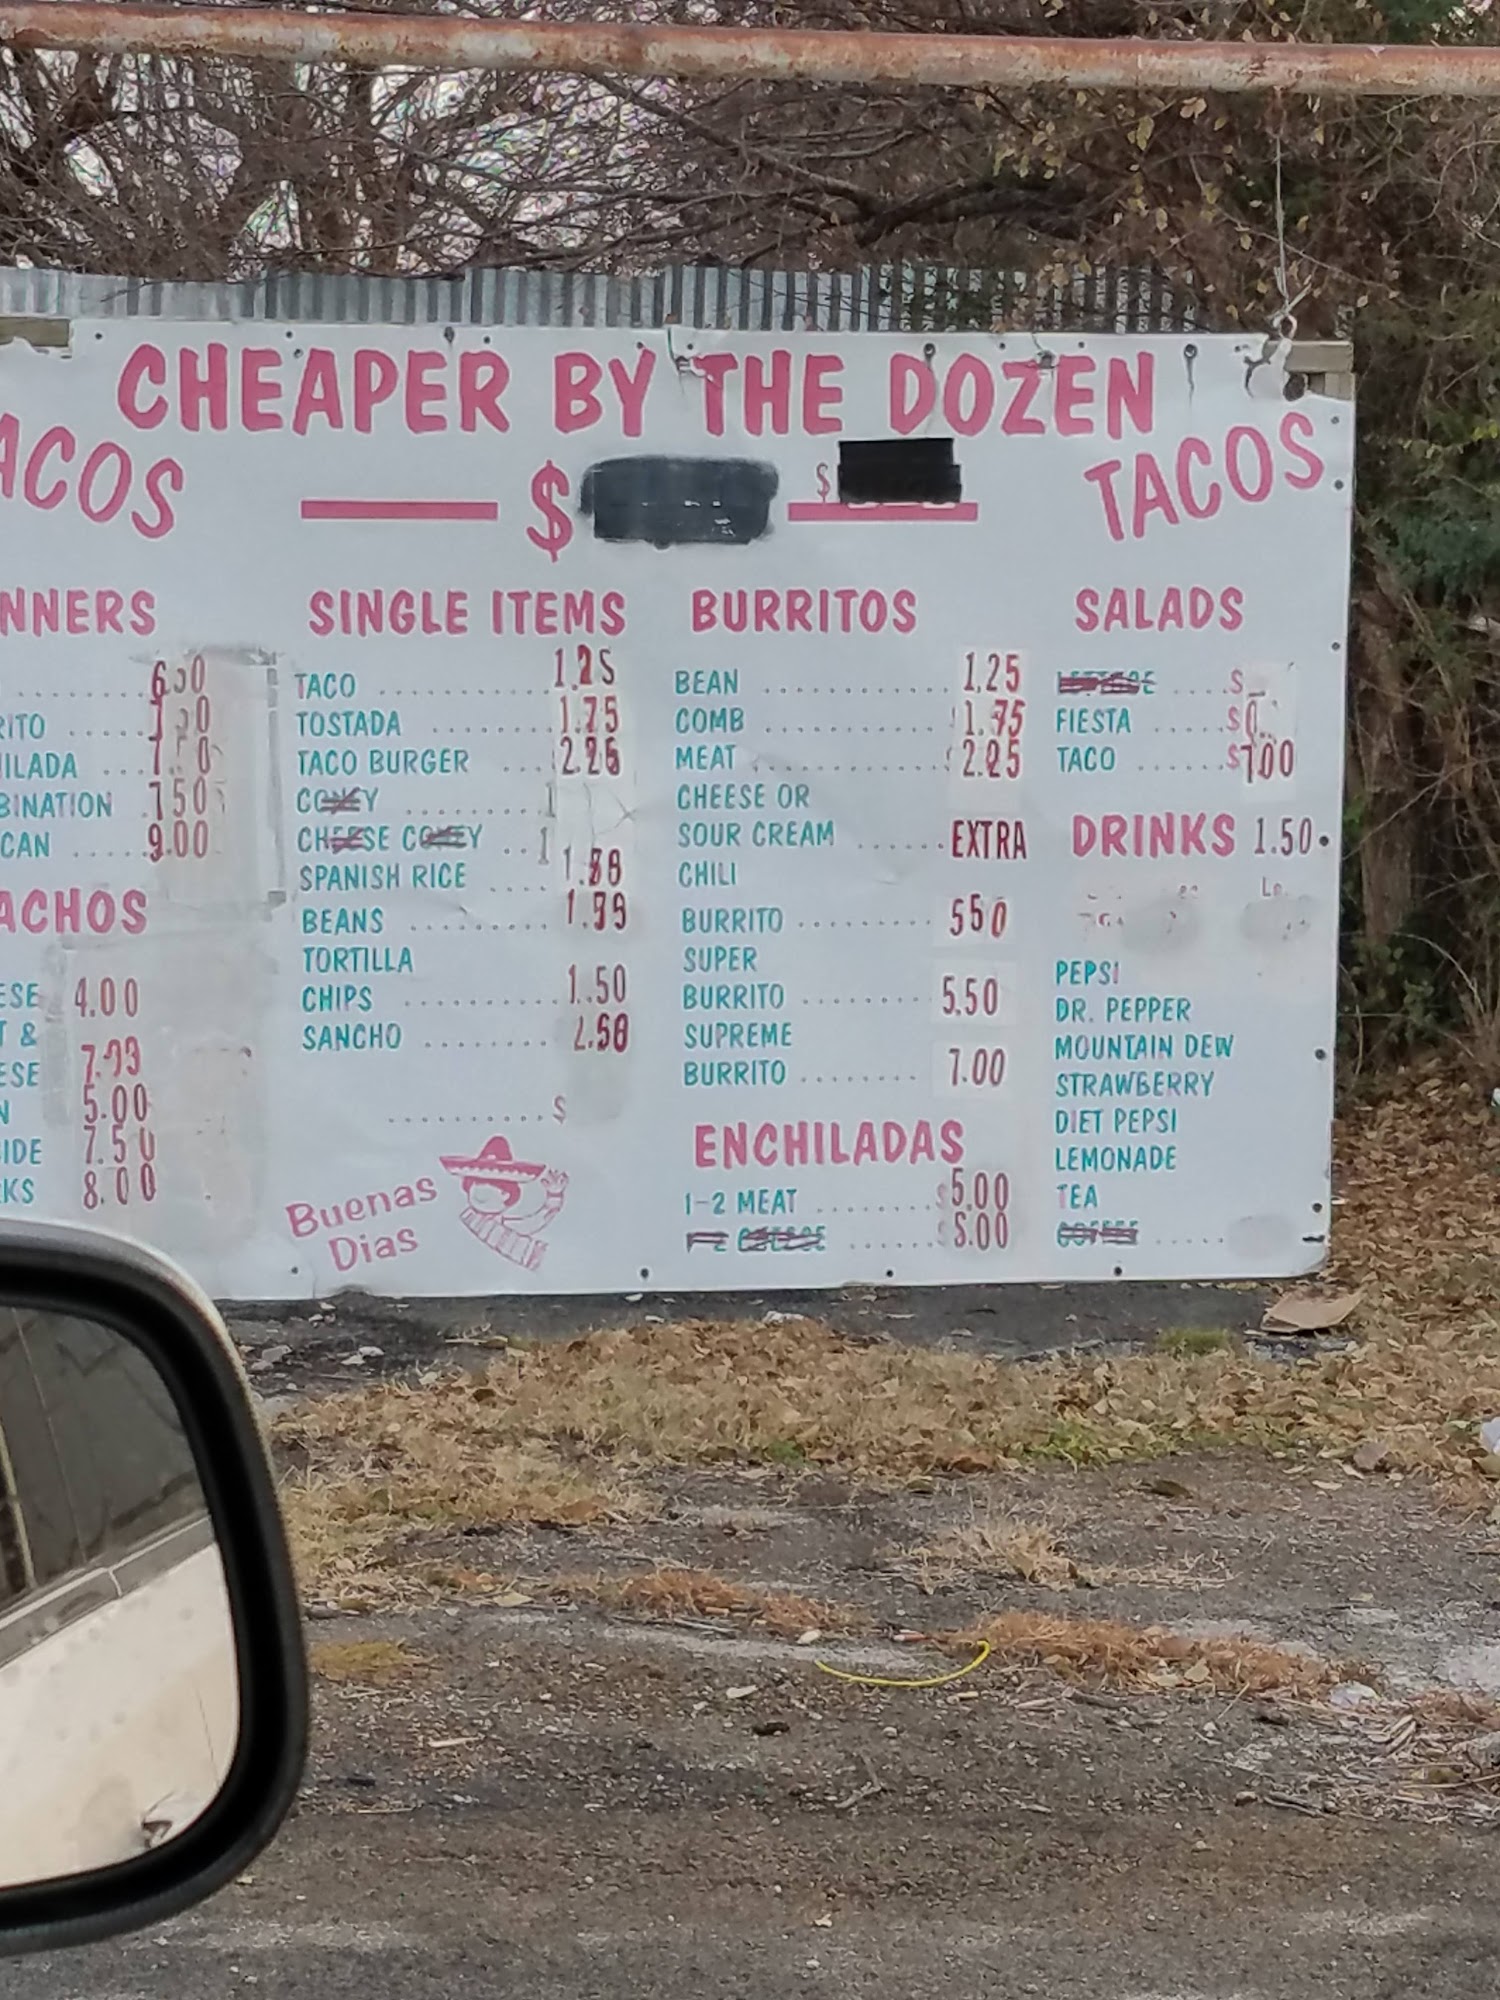 CHEAPER BY THE DOZEN
ACOS $ $ TACOS
NNERS
6.50
RITO
ILADA
BINATION 7.50
CAN 9.00
ACHOS
ESE 4.00
T &
ESE
N 5.00
IDE 7.50
KS 8.00
SINGLE ITEMS
TACO 1.25
TOSTADA 1.75
TACO BURGER 2.25
CONEY 1
CHEESE CONEY 1
SPANISH RICE
BEANS
TORTILLA
CHIPS 1.50
SANCHO
$
Buenas
Dias
BURRITOS
BEAN 1.25
COMB 1.75
MEAT 2.25
CHEESE OR
SOUR CREAM EXTRA
CHILI
BURRITO 5.50
SUPER
BURRITO 5.50
SUPREME
BURRITO 7.00
ENCHILADAS
1-2 MEAT $5.00
1-2 CHEESE $5.00
SALADS
LETTUCE $
FIESTA $
TACO $7.00
DRINKS 1.50
PEPSI
DR. PEPPER
MOUNTAIN DEW
STRAWBERRY
DIET PEPSI
LEMONADE
TEA
COFFEE